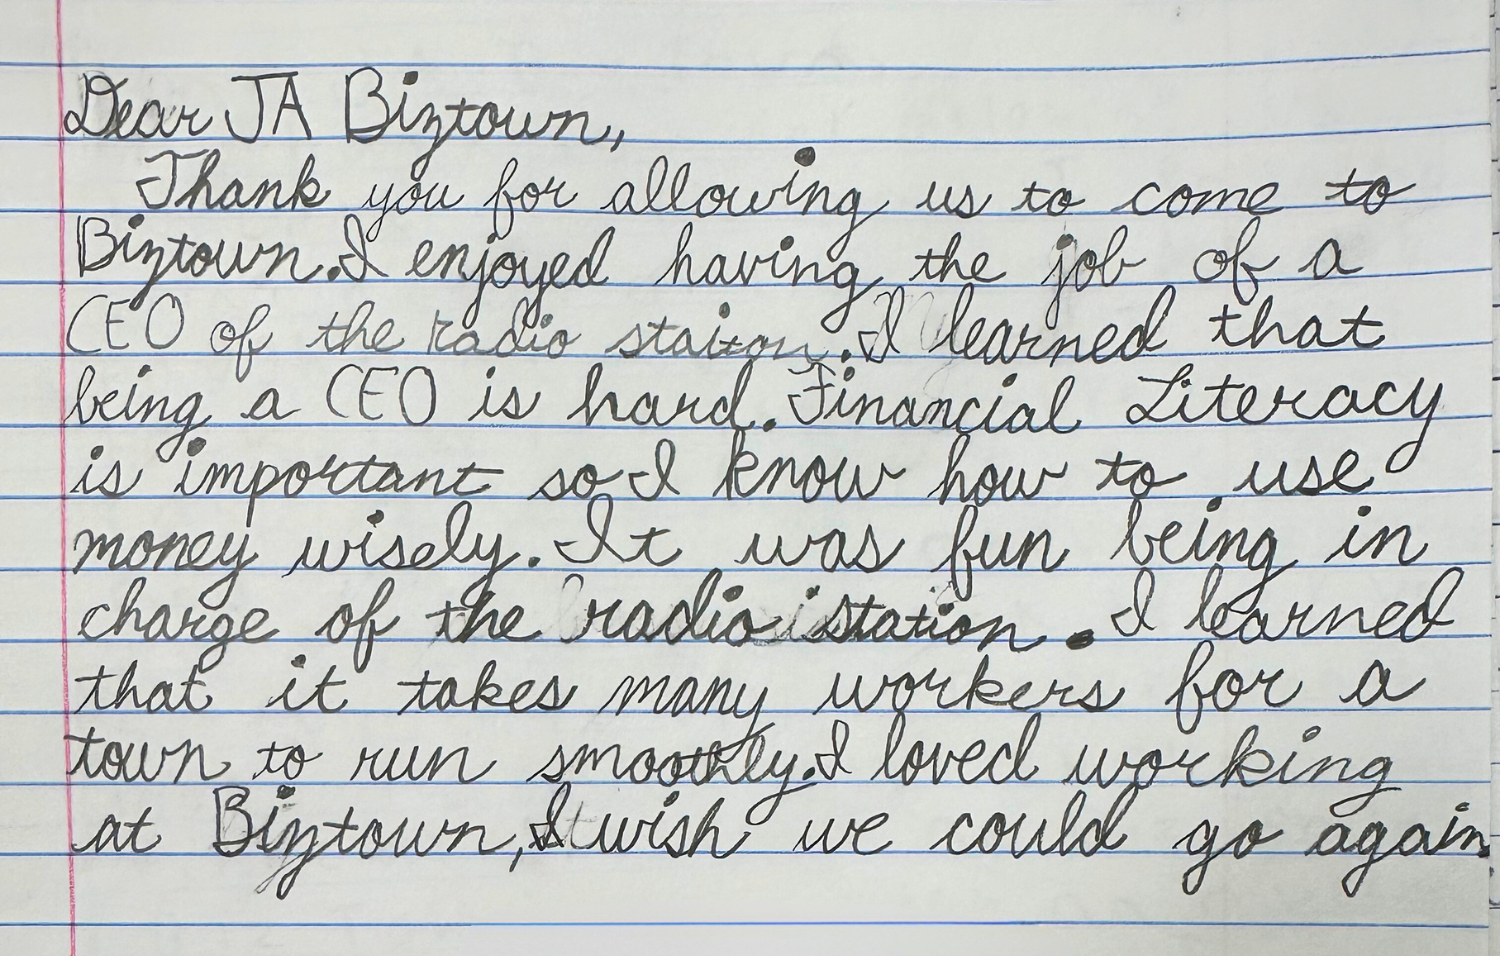 Dear JA Biztown,
Thank you for allowing us to come to
Biztown. I enjoyed having the job of a
CEO of the radio staiton. I learned that
being a CEO is hard. Financial Literacy
is important so I know how to use
money wisely. It was fun being in
charge of the radio station. I learned
that it takes many workers for a
town to run smoothly. I loved working
at Biztown, I wish we could go again